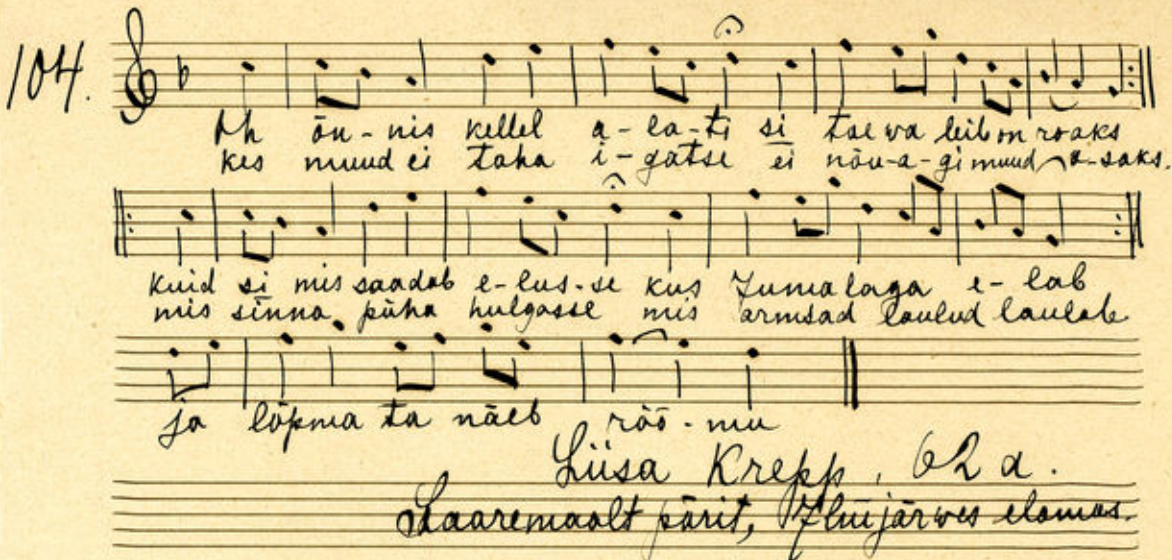 104.
Oh õn-nis kellel a-la-ti si tae va leib on roaks
kes muud ei taha i-gatse ei nõu-a-gi muud o-saks.
kuid si mis saadab e-lus-se kus Jumalaga e-lab
mis sinna püha hulgasse mis armsad laulud laulab
ja lõpma ta näeb rõõ-mu
Liisa Krepp, 62 a.
Saaremaalt pärit, elamas.